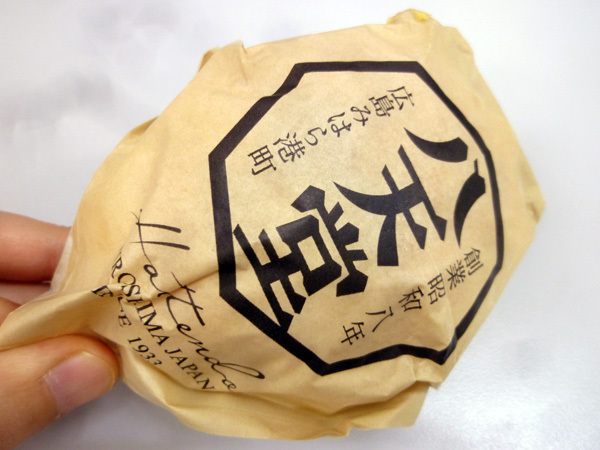 創業昭和八年
八天堂
広島みはら港町
Hattendo
HIROSHIMA JAPAN
SINCE 1933